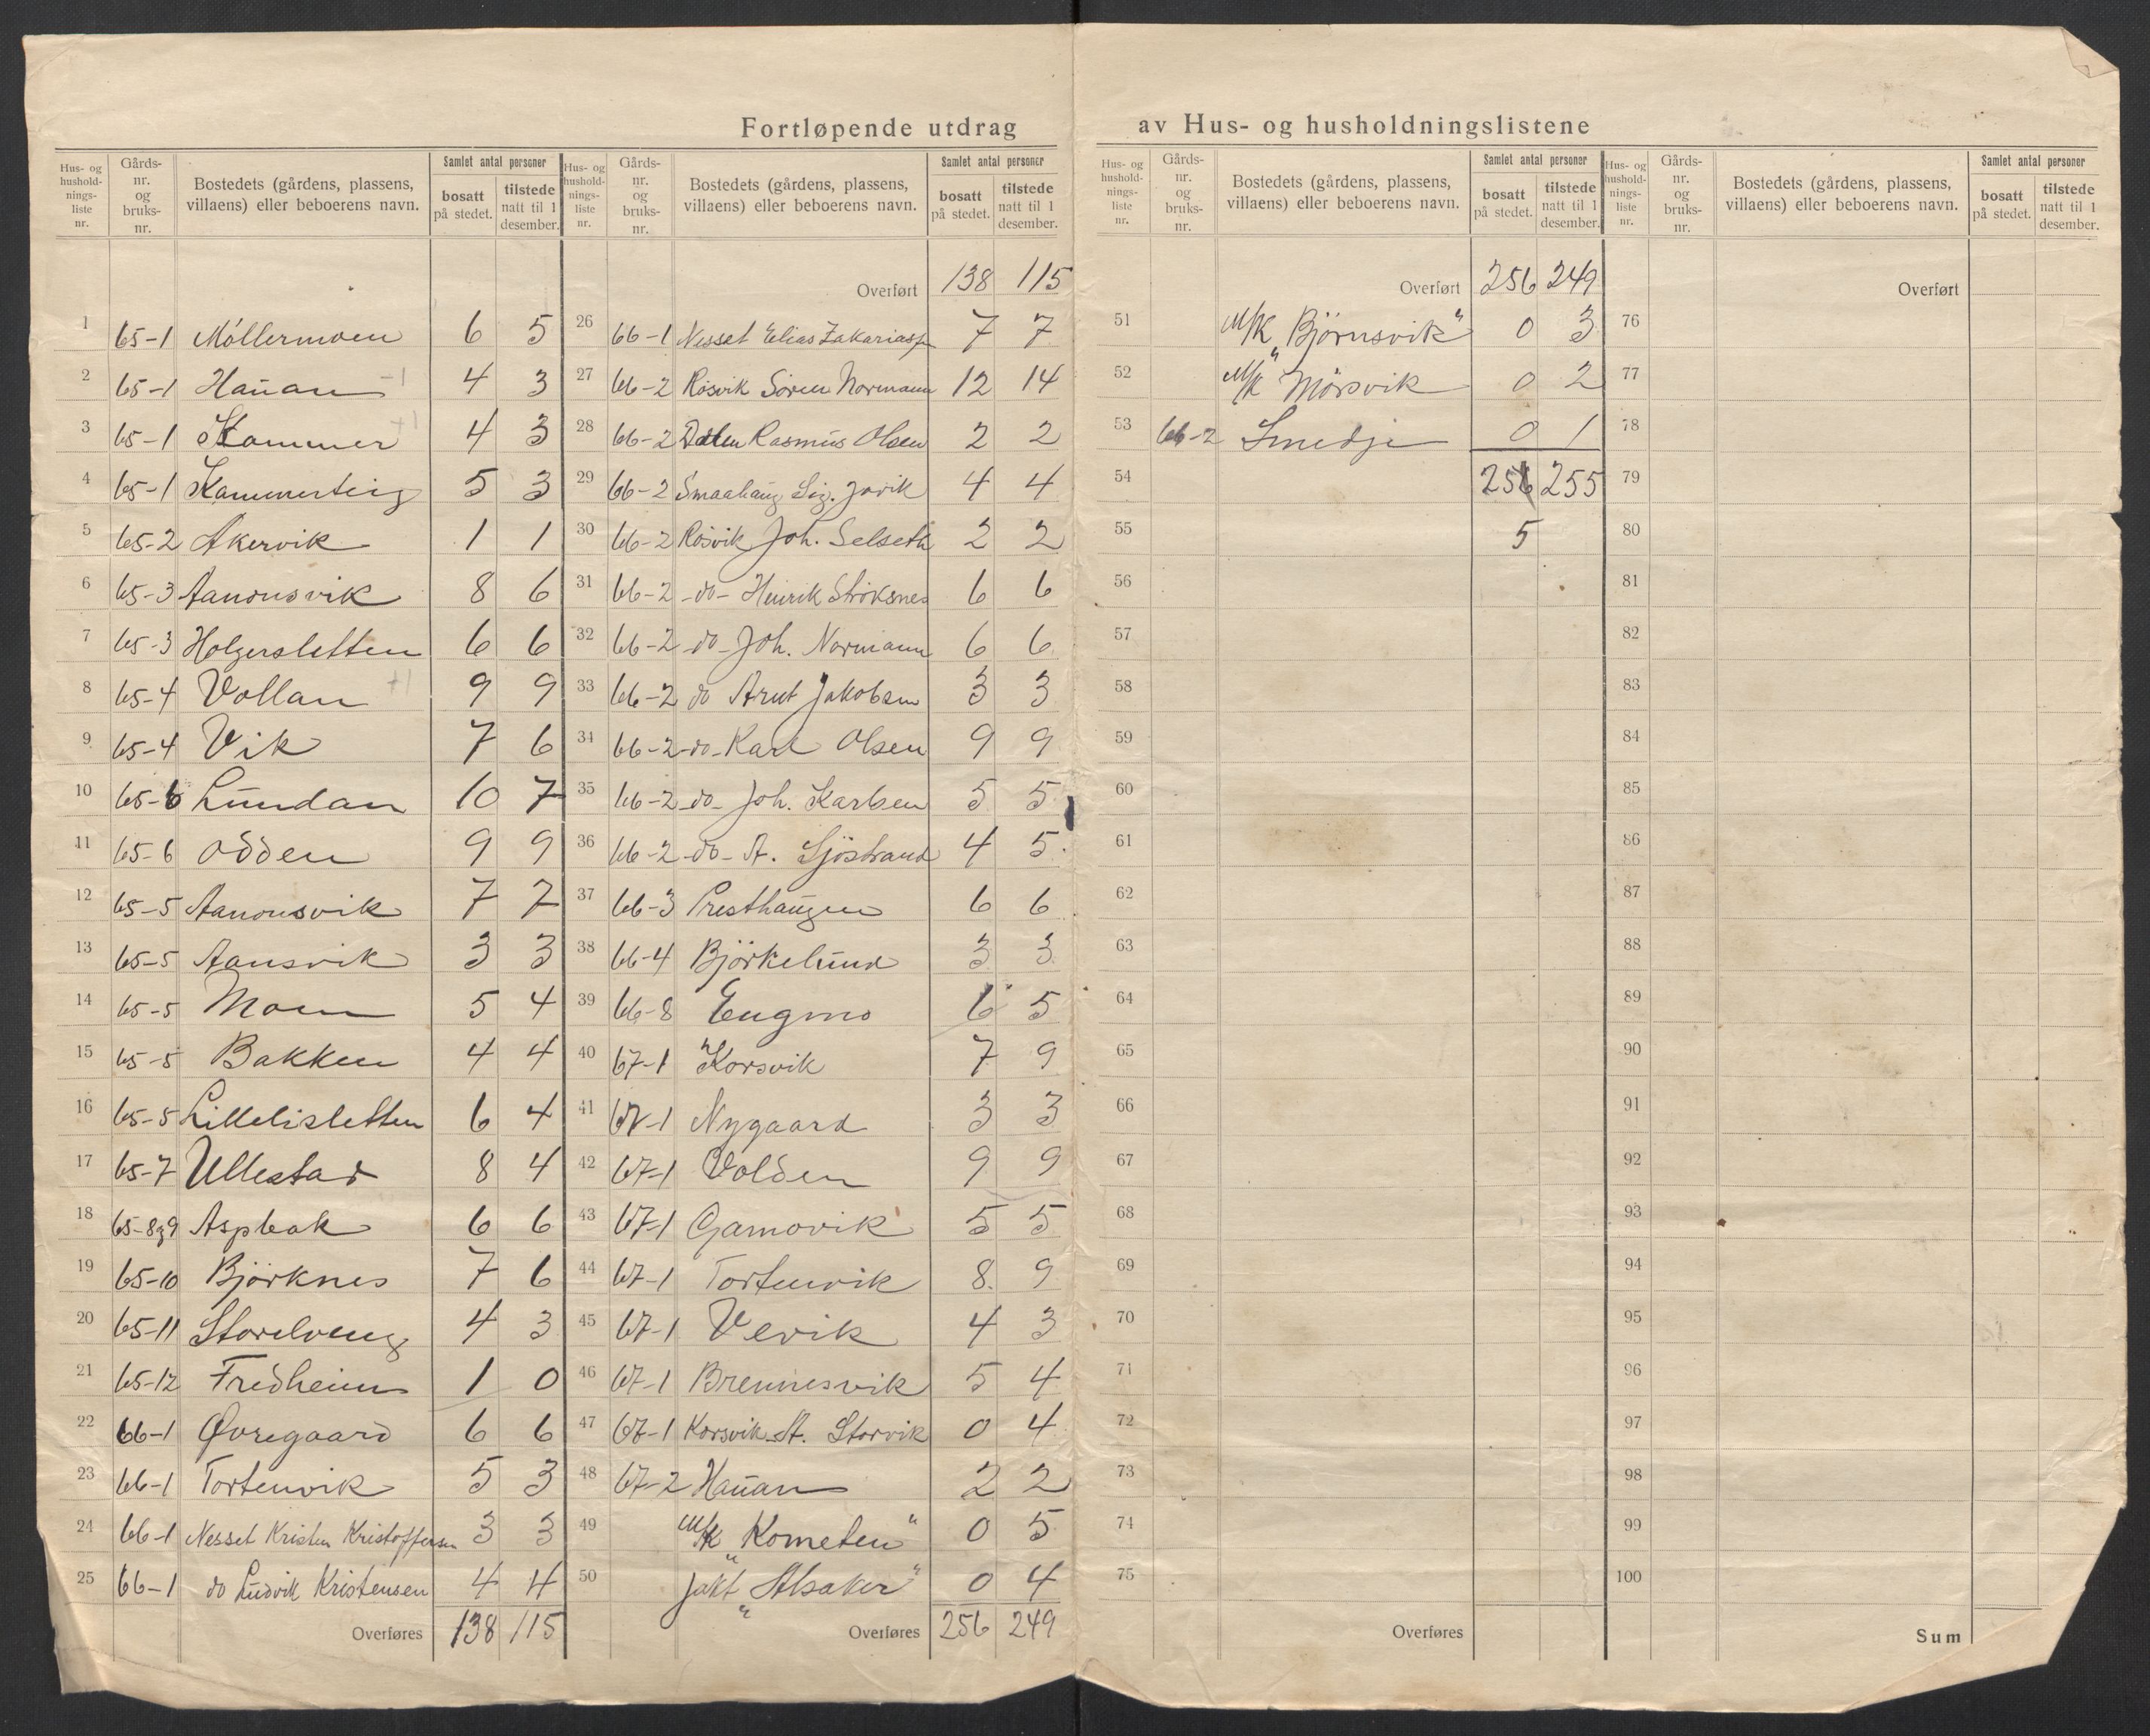 Fortløpende utdrag av Hus- og husholdningslistene
Hus- og husholdningsliste nr. | Gårds-nr. og bruks-nr. | Bostedets (gårdens, plassens, villaens) eller beboerens navn. | Samlet antal personer | bosatt på stedet. | tilstede natt til 1 desember.
1 65-1 Möllermoen 6 5
2 65-1 Hauan -1 4 3
3 65-1 Kammer +1 4 3
4 65-1 Kammerteig 5 3
5 65-2 Akervik 1 1
6 65-3 Aanonsvik 8 6
7 65-3 Holgersletten 6 6
8 65-4 Vollan +1 9 9
9 65-4 Vik 7 6
10 65-6 Lundan 10 7
11 65-6 Odden 9 9
12 65-5 Aanonsvik 7 7
13 65-5 Aansvik 3 3
14 65-5 Moen 5 4
15 65-5 Bakken 4 4
16 65-5 Lillelisletten 6 4
17 65-7 Ullestad 8 4
18 65-8og9 Aspbak 6 6
19 65-10 Björknes 7 6
20 65-11 Storelveng 4 3
21 65-12 Fredheim 1 0
22 66-1 Øvregaard 6 6
23 66-1 Tortenvik 5 3
24 66-1 Nesset Kristen Kristoffersen 3 3
25 66-1 do Ludvik Kristensen 4 4
Overføres 138 115
Hus- og husholdningsliste nr. | Gårds-nr. og bruks-nr. | Bostedets (gårdens, plassens, villaens) eller beboerens navn. | Samlet antal personer | bosatt på stedet. | tilstede natt til 1 desember.
Overført 138 115
26 66-1 Nesset Elias Zakarias 7 7
27 66-2 Rösvik Sören Normann 12 14
28 66-2 Rasmus Olsen 2 2
29 66-2 Smaahaug Sig. Jovik 4 4
30 66-2 Rösvik Joh. Selseth 2 2
31 66-2 -do- Henrik Ströksnes 6 6
32 66-2 do- Joh. Normann 6 6
33 66-2 do Arnt Jakobsen 3 3
34 66-2 -do- Karl Olsen 9 9
35 66-2 -do- Joh. Karlsen 5 5
36 66-2 -do- A. Sjöstrand 4 5
37 66-3 Presthaugen 6 6
38 66-4 Björkelund 3 3
39 66-8 Engmo 6 5
40 67-1 Korsvik 7 9
41 67-1 Nygaard 3 3
42 67-1 Volden 9 9
43 67-1 Gamovik 5 5
44 67-1 Tortenvik 8 9
45 67-1 Vevik 4 3
46 67-1 Brennesvik 5 4
47 67-1 Korsvik A. Storvik 0 4
48 67-2 Hauan 2 2
49 M/K "Kometen" 0 5
50 Jakt "Alsaker" 0 4
Overføres 256 249
Hus- og husholdningsliste nr. | Gårds-nr. og bruks-nr. | Bostedets (gårdens, plassens, villaens) eller beboerens navn. | Samlet antal personer | bosatt på stedet. | tilstede natt til 1 desember.
Overført 256 249
51 M/K "Björnsvik" 0 3
52 M/K Mörsvik 0 2
53 66-2 Smedje 0 1
54 256 255
55 5
56
57
58
59
60
61
62
63
64
65
66
67
68
69
70
71
72
73
74
75
Overføres
Hus- og husholdningsliste nr. | Gårds-nr. og bruks-nr. | Bostedets (gårdens, plassens, villaens) eller beboerens navn. | Samlet antal personer | bosatt på stedet. | tilstede natt til 1 desember.
Overført
76
77
78
79
80
81
82
83
84
85
86
87
88
89
90
91
92
93
94
95
96
97
98
99
100
Sum